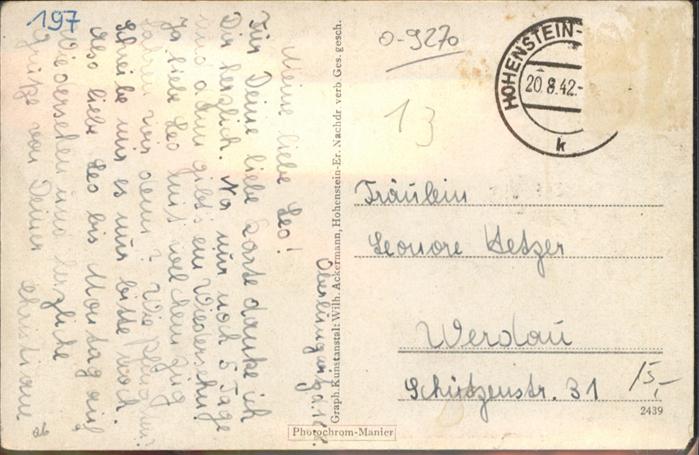 197
Meine liebe Leo!
Für Deine liebe Karte danke ich
Dir herzlich. Na nur noch 5 Tage
und dann gibt's ein Wiedersehen
Ja liebe Leo mit welchem Zug
fahren wir denn? Wie
Schreibe mir es nur bitte noch.
Also liebe Leo bis Montag auf
Wiedersehen und herzliche
Grüße von Deiner Christiane
Graph. Kunstanstalt: Wilh. Ackermann, Hohenstein-Er. Nachdr. verb. Ges. gesch.
0-9270
13
HOHENSTEIN-
20.8.42.-
k
Fräulein
Leonore Hetzer
Werdau
Schützenstr. 31
15,-
2439
Photochrom-Manier